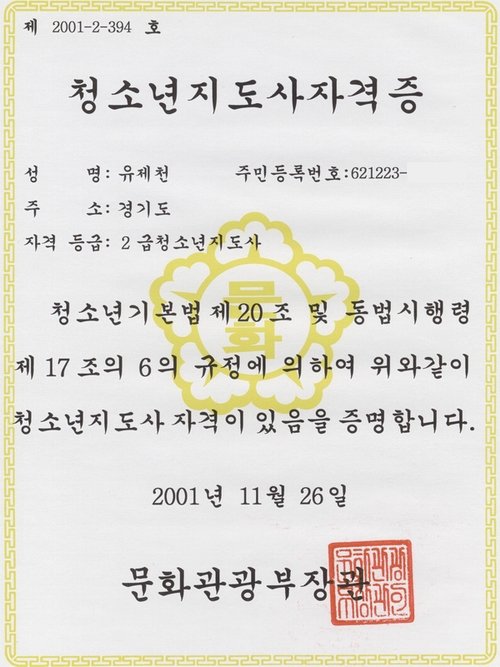 제 2001-2-394 호
청소년지도사자격증
성 명: 유제천 주민등록번호:621223-
주 소: 경기도
자격 등급: 2 급청소년지도사
문화
청소년기본법 제 20 조 및 동법시행령
제 17 조의 6 의 규정에 의하여 위와같이
청소년지도사 자격이 있음을 증명합니다.
2001년 11월 26일
문화관광부장관